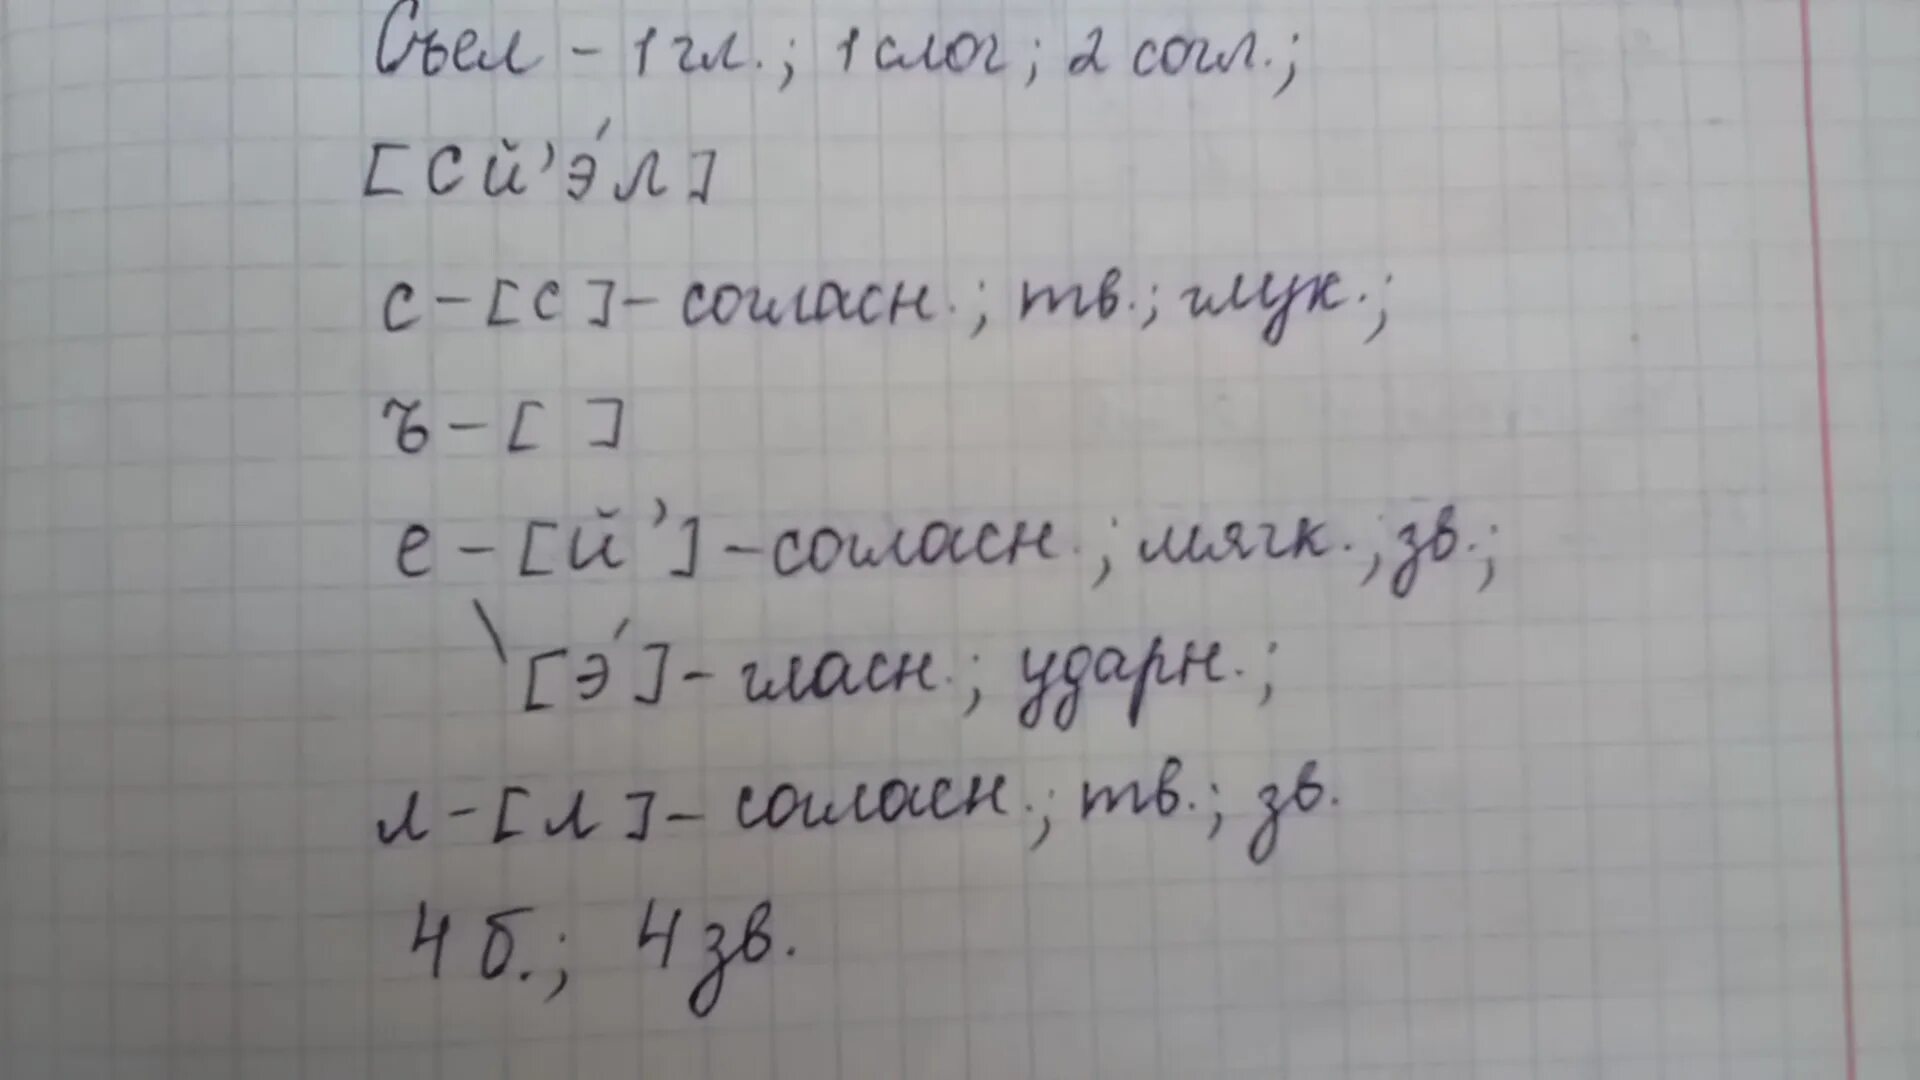 Съел - 1 гл.; 1 слог; 2 согл.;
[сй’э́л]
с - [с] - согласн.; тв.; глух.;
ъ - [ ]
е - [й’] - согласн.; мягк.; зв.;
\ [э́] - гласн.; ударн.;
л - [л] - согласн.; тв.; зв.
4 б.; 4 зв.